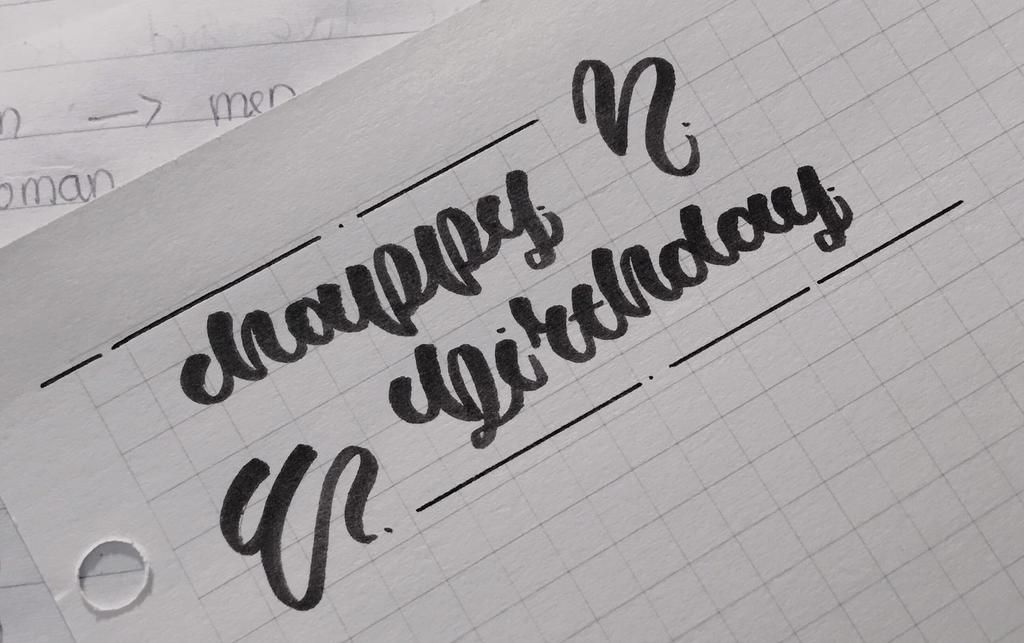 n → men
oman
happy
birthday